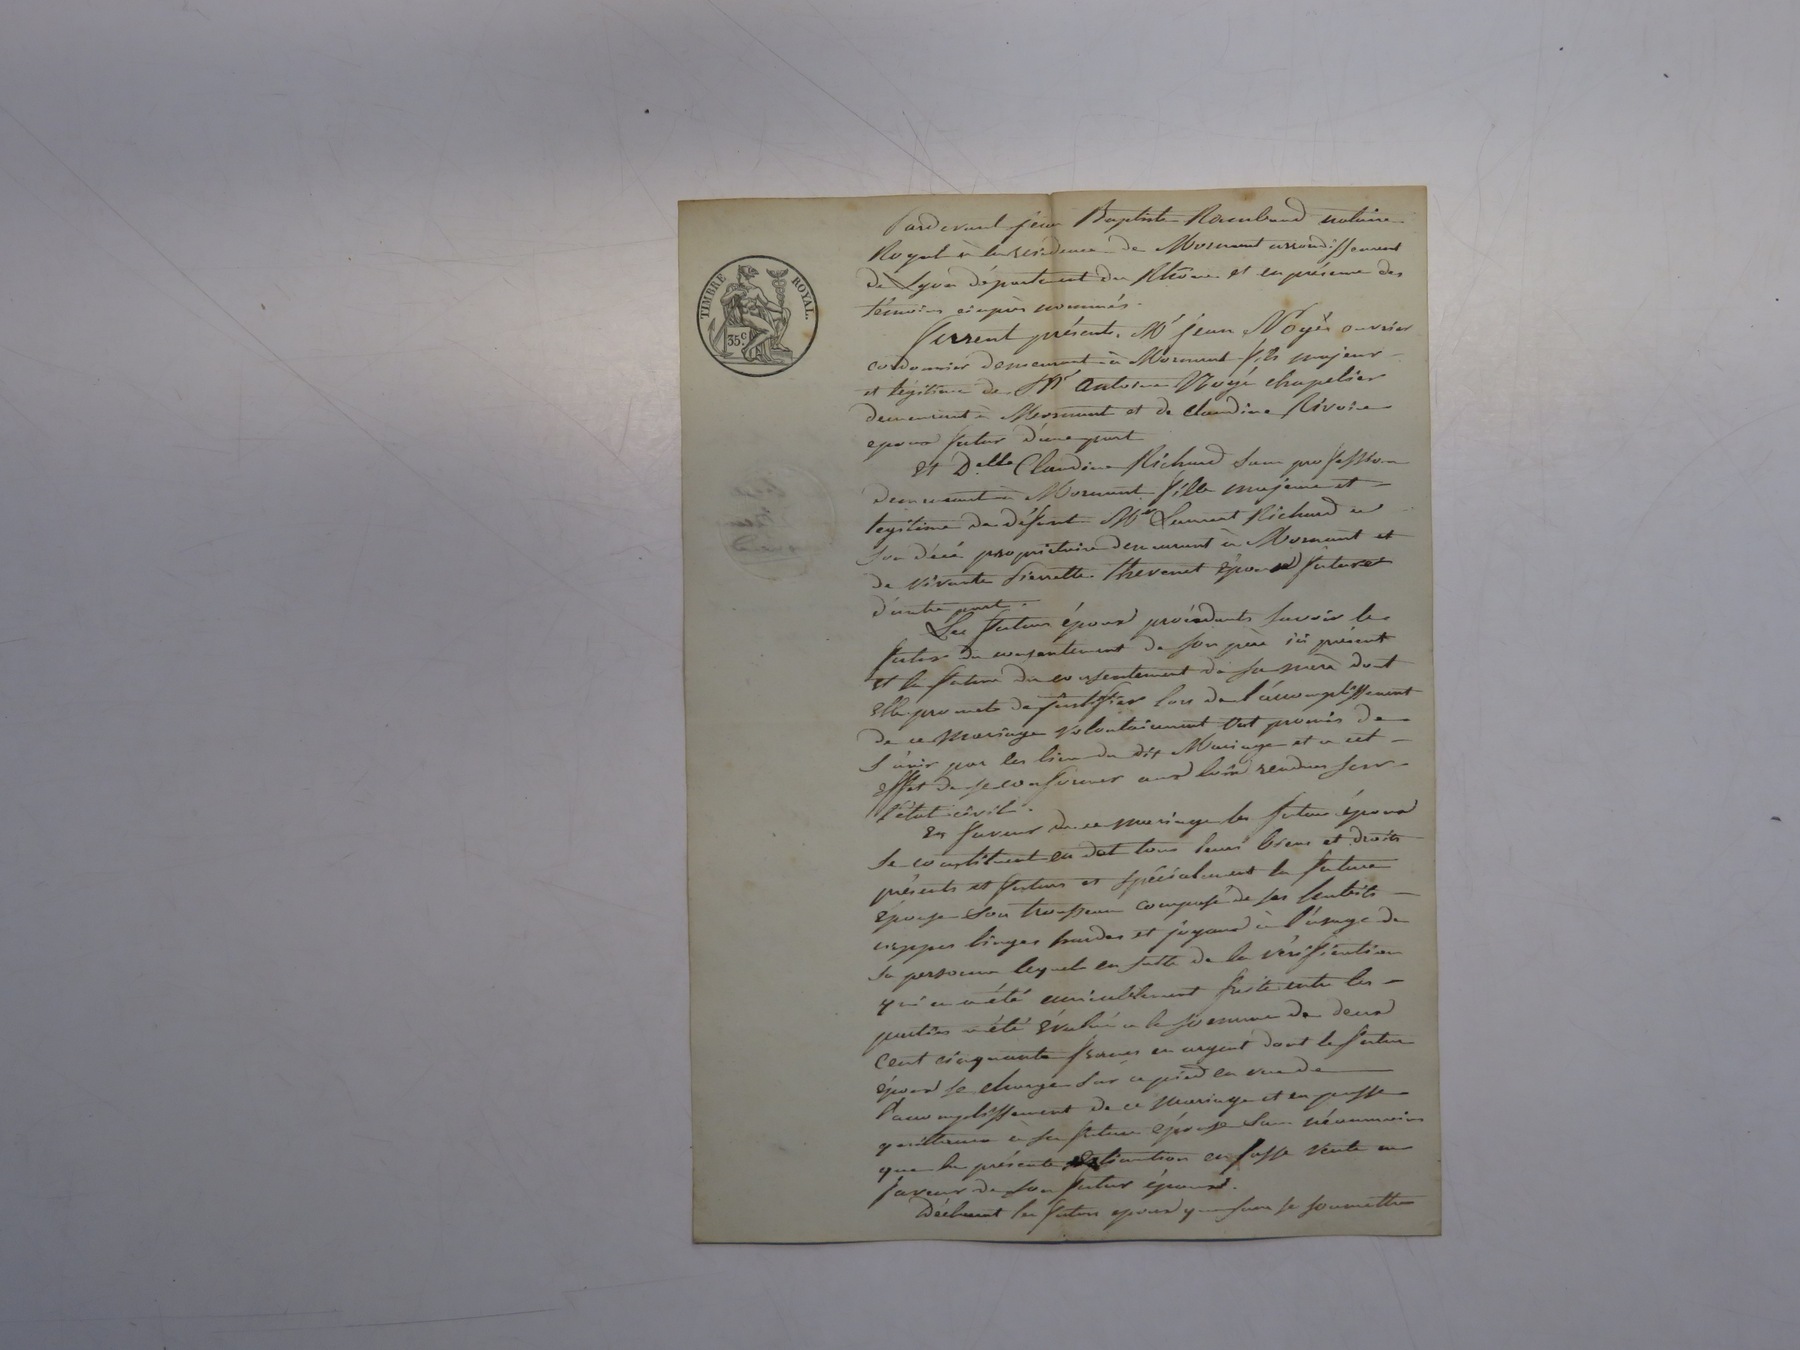 TIMBRE ROYAL.
35 c.
Pardevant jean Baptiste Raimbaud notaire
Royal à la résidence de Mornant arrondissement
de Lyon département du Rhône et en présence des
témoins ci après nommés.
Furent présents. Mr jean Noyé ouvrier
cordonnier demeurant à Mornant fils majeur
et légitime de Sr antoine Noyé chapelier
demeurant à Mornant et de claudine Rivoire
epoux futur d'une part
Et Delle Claudine Richard sans profession
demeurant à Mornant fille majeure et
legitime de défunt Mr Laurent Richard a
son décé propriétaire demeurant à Mornant et
de vivante Pierrette thevenet épouse future
d'autre part.
Les futurs époux procédants savoir le
futur du consentement de son père ici présent
et la future du consentement de sa mère dont
elle promet de justifier lors de l'accomplissement
de ce mariage volontairement ont promis de
s'unir par les liens du dit Mariage et a cet
effet de se conformer aux lois rendues sur
l'état civil.
En faveur de ce mariage les futurs époux
se constituent en dot tous leurs biens et droits
présents et futurs et spécialement la future
épouse son trousseau composé de ses habits
nippes linges hardes et joyaux à l'usage de
sa personne lequel en suite de la vérification
qui en a été amicablement faite entre les
parties a été évalué a la somme de deux
cent cinquante francs en argent dont le futur
époux se charge sur ce pied en vue de
l'accomplissement de ce mariage et en passe
quittance à sa future épouse sans néanmoins
que la présente estimation en fasse vente en
faveur de son futur époux.
Déclarent les futurs epoux que sans se soumettre